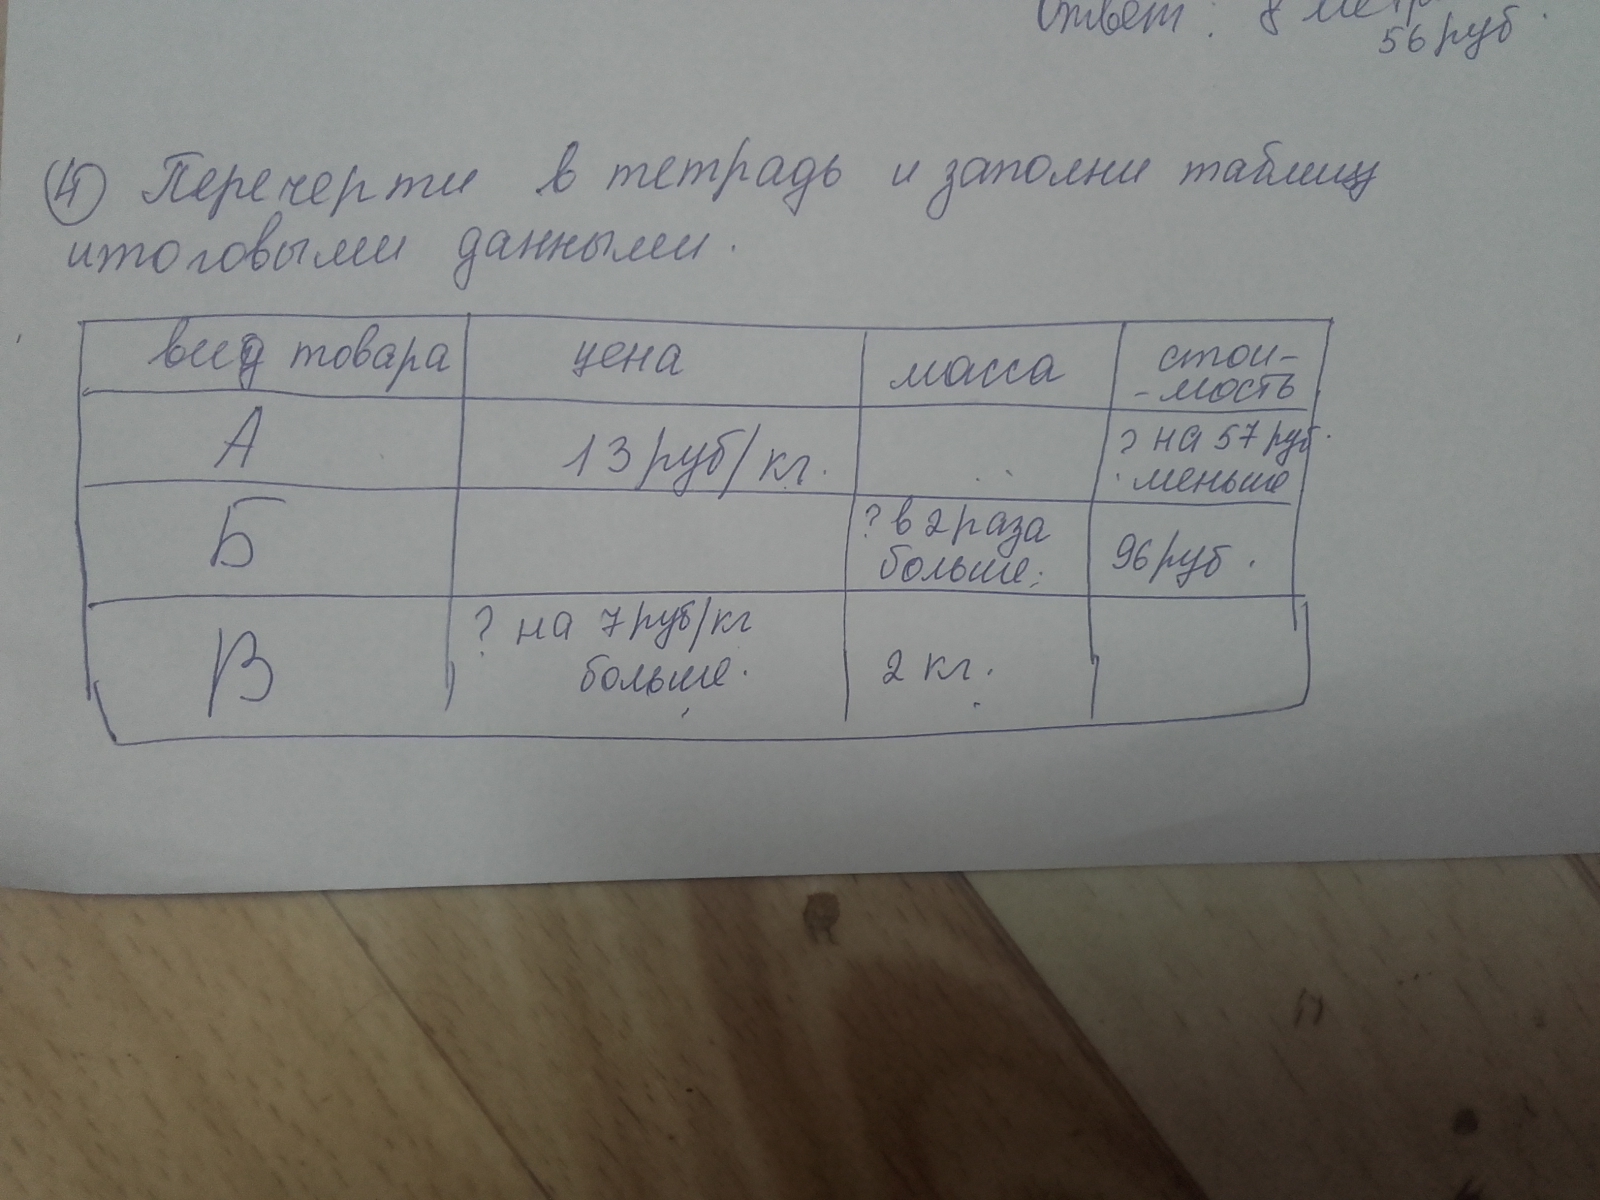 Ответ: 8 метр
56 руб.
4 Перечерти в тетрадь и заполни таблицу
итоговыми данными.
вид товара цена масса стои-
-мость
А 13 руб/кг. ? на 57 руб.
меньше
Б ? в 2 раза
больше. 96 руб.
? на 7 руб/кг
В больше. 2 кг.